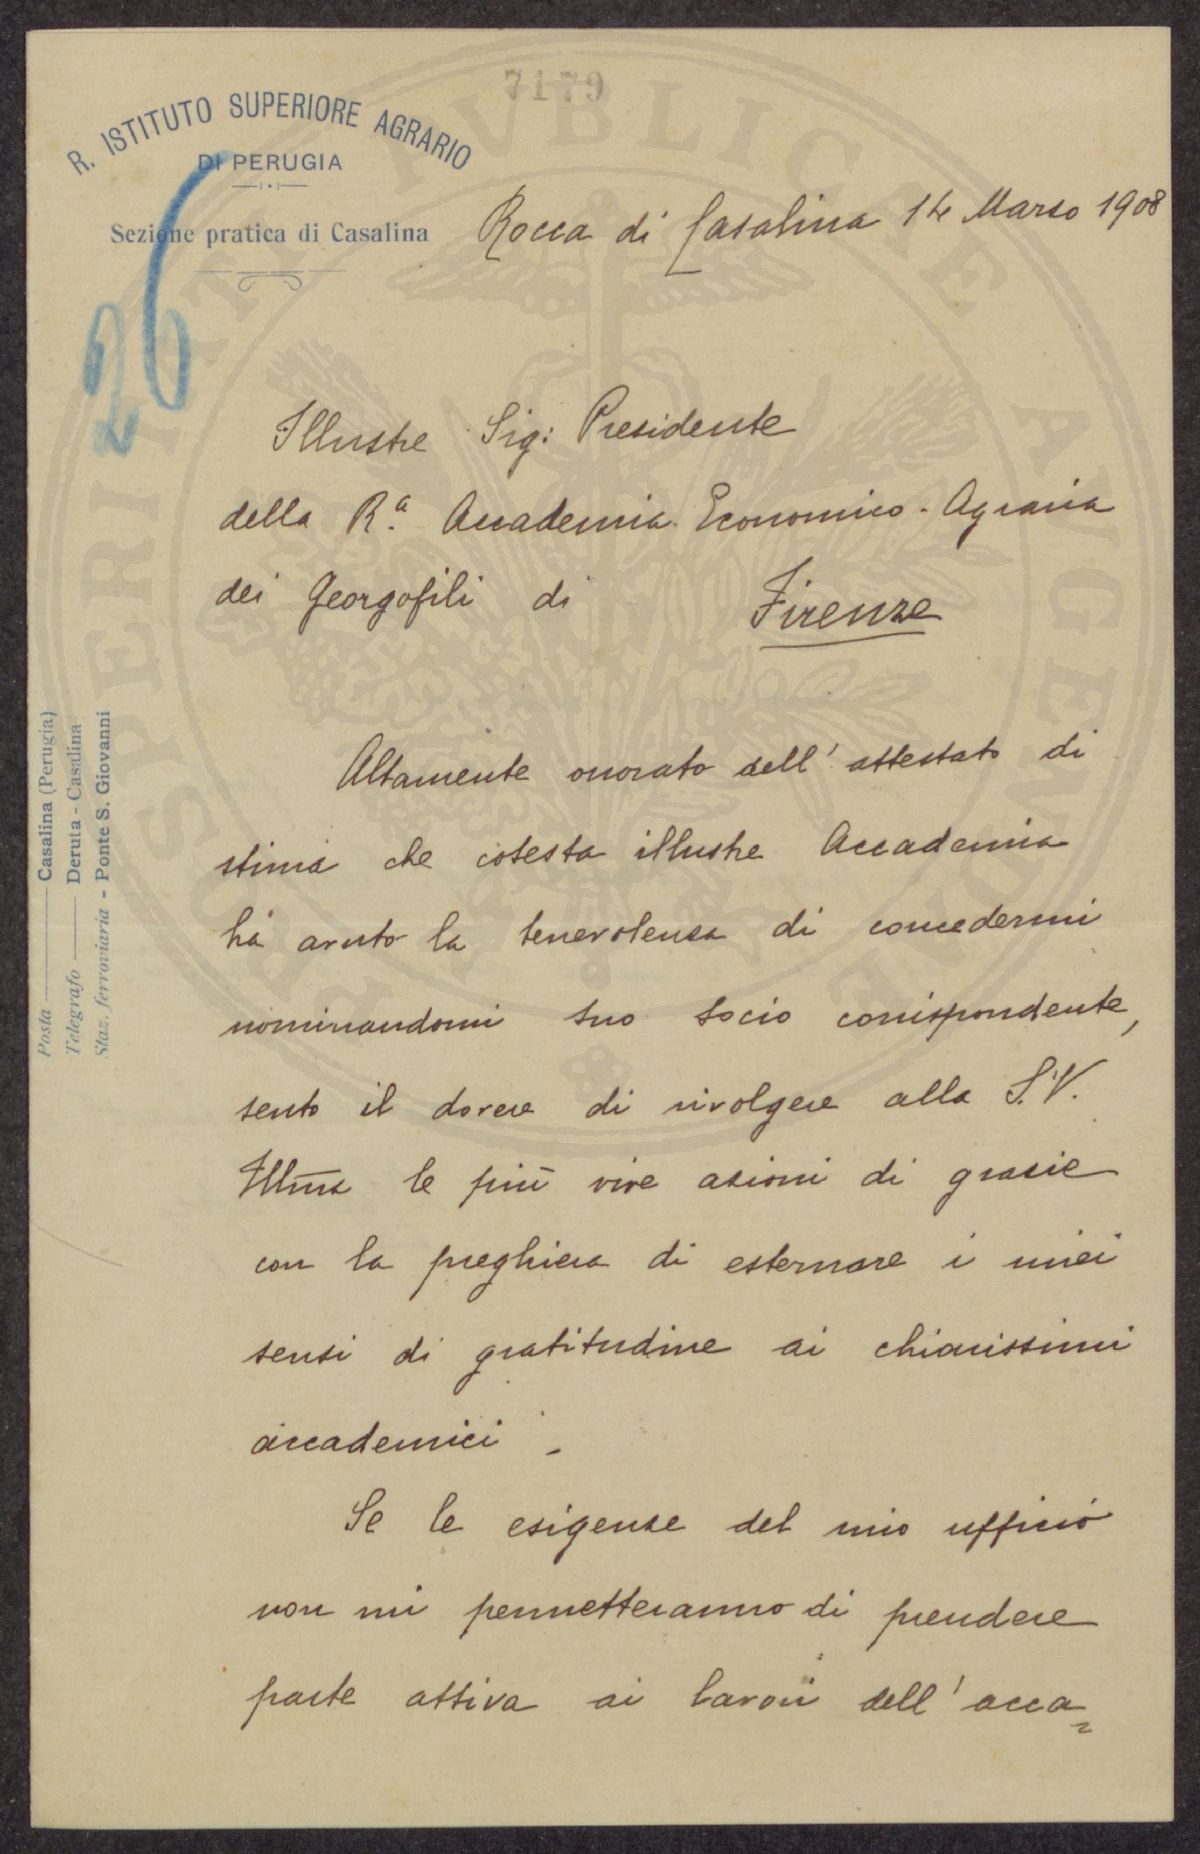 7179
R. ISTITUTO SUPERIORE AGRARIO
DI PERUGIA
Sezione pratica di Casalina
26
Rocca di Casalina 14 Marzo 1908
Illustre Sig: Presidente
della R.a Accademia Economico-Agraria
dei Georgofili di Firenze
Posta — Casalina (Perugia)
Telegrafo — Deruta - Casalina
Staz. ferroviaria - Ponte S. Giovanni
Altamente onorato dell'attestato di
stima che cotesta illustre Accademia
ha avuto la benevolenza di concedermi
nominandomi suo socio corrispondente,
sento il dovere di rivolgere alla S.V.
Illma le più vive azioni di grazie
con la preghiera di esternare i miei
sensi di gratitudine ai chiarissimi
accademici.
Se le esigenze del mio ufficio
non mi permetteranno di prendere
parte attiva ai lavori dell'acca=